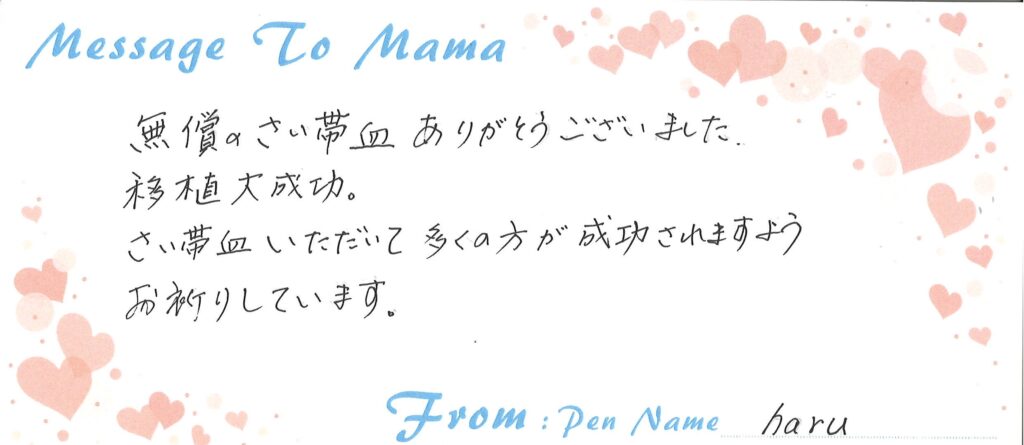 Message To Mama
無償のさい帯血 ありがとうございました.
移植大成功。
さい帯血 いただいて 多くの方が 成功されますよう
お祈りしています。
From : Pen Name haru